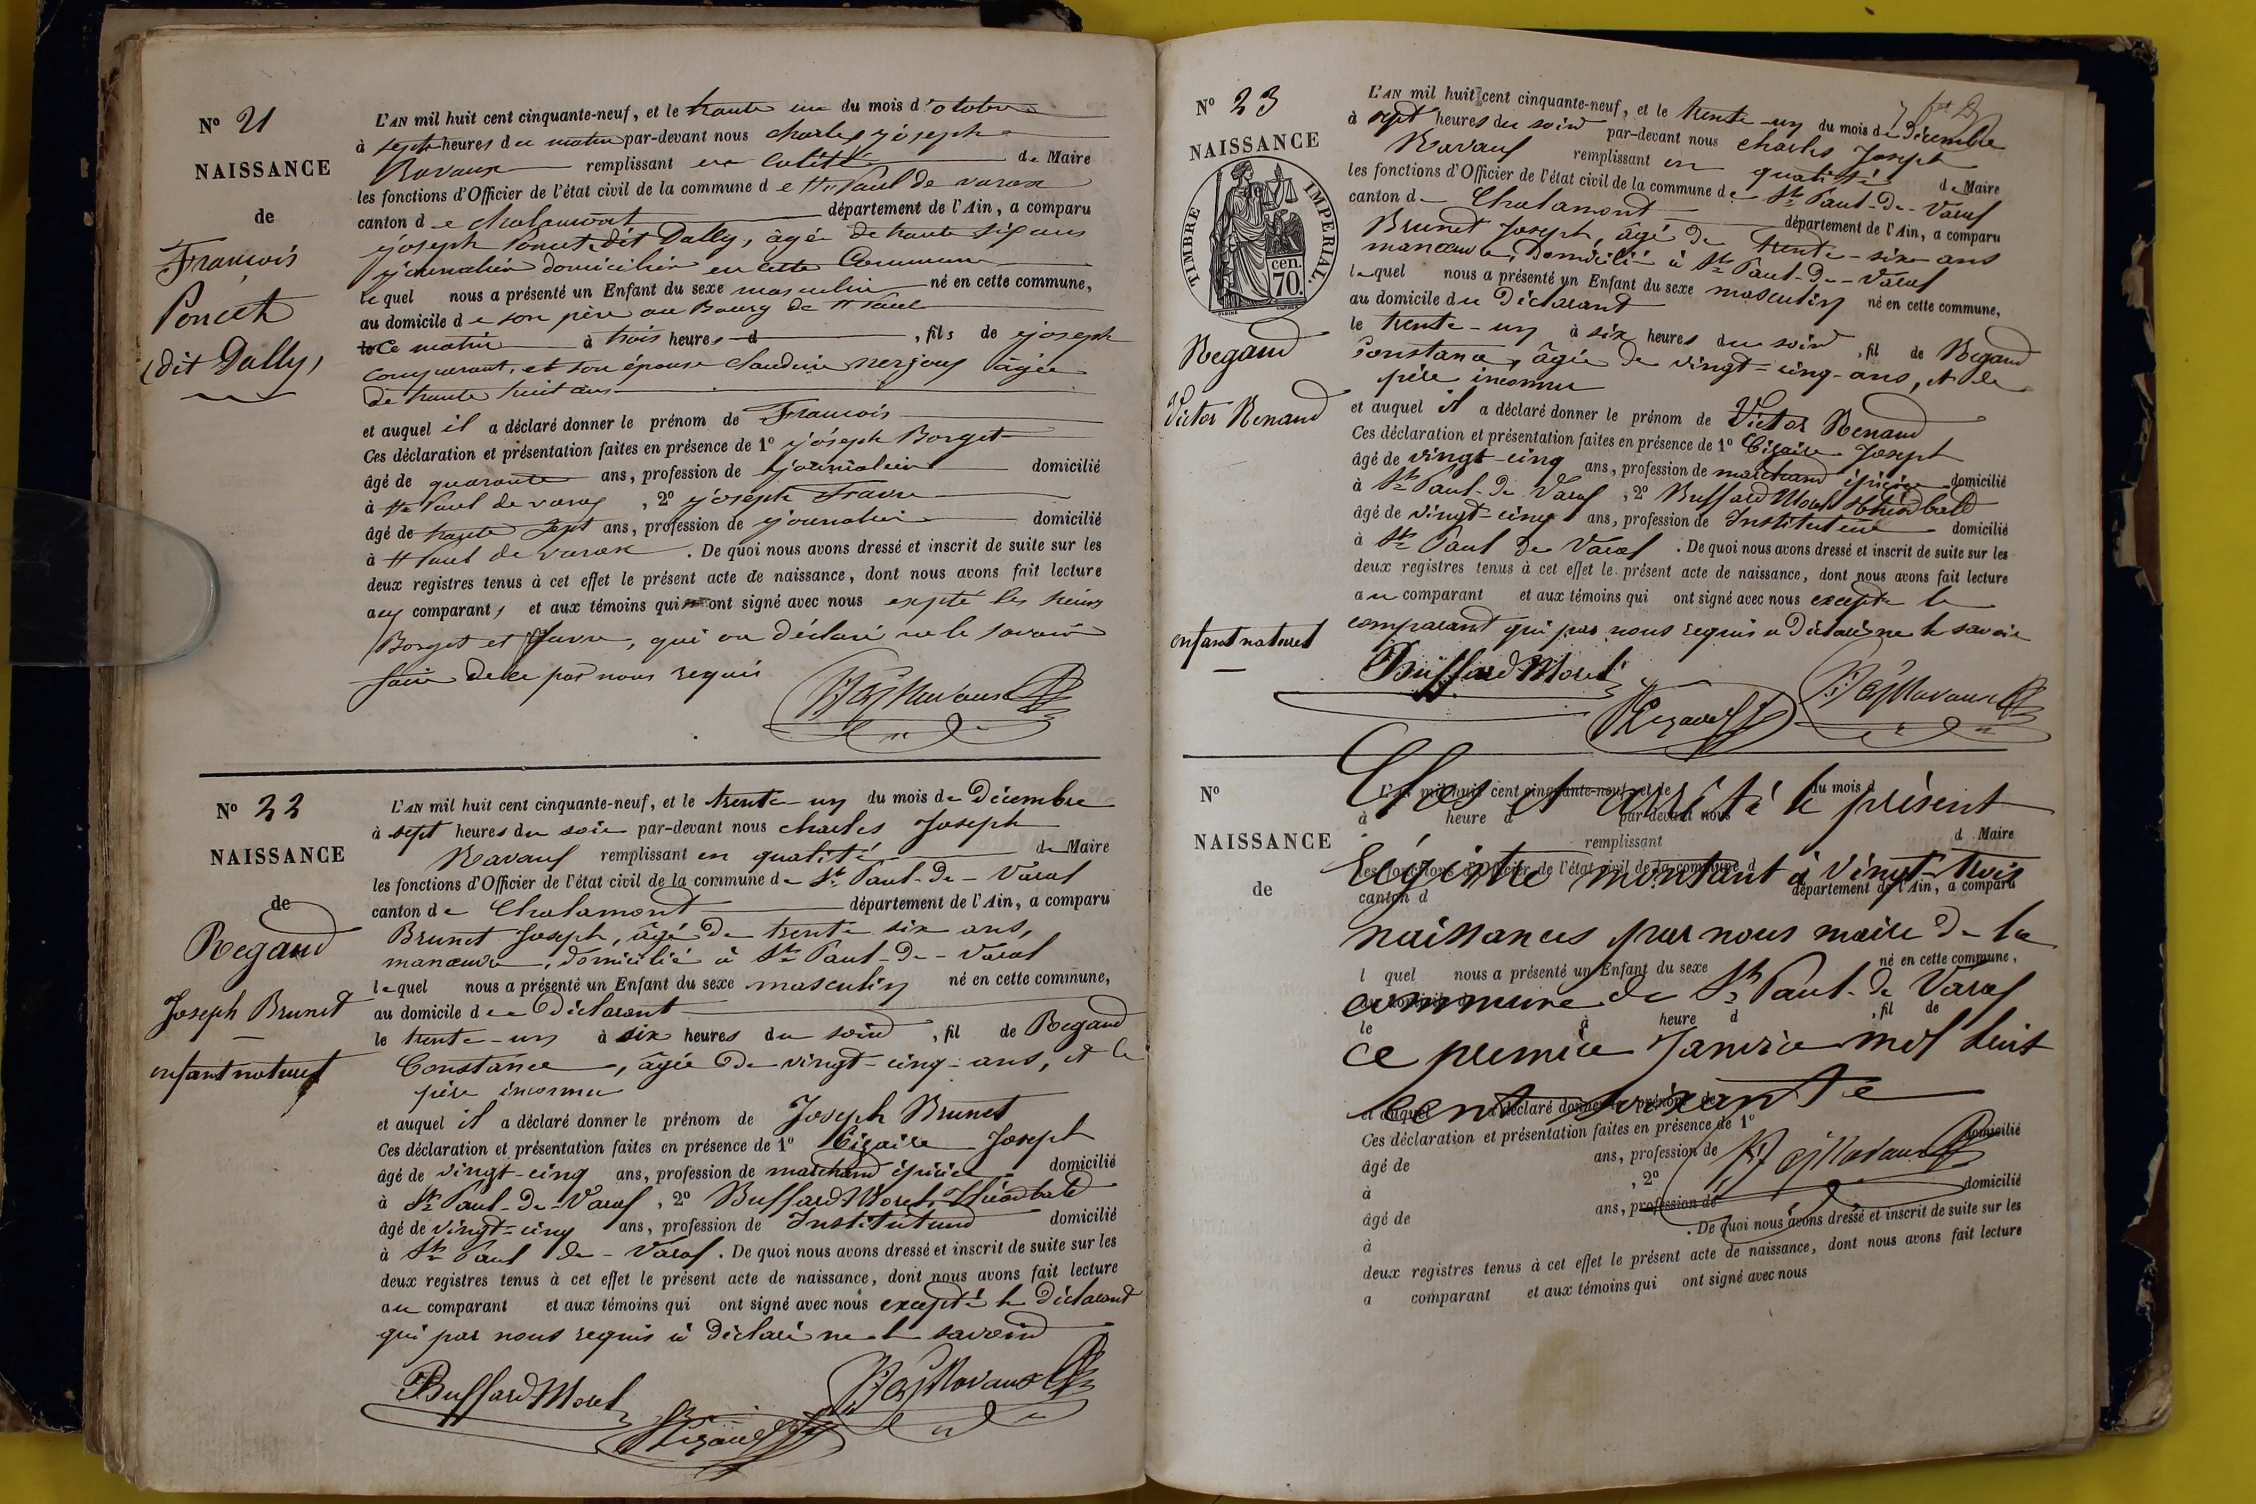 N° 21
NAISSANCE
de
François
Poncet
(dit Dally)
L'AN mil huit cent cinquante-neuf, et le trente un du mois d'octobre
à sept heures du matin par-devant nous charles joseph
Ravaux remplissant en calité de Maire
les fonctions d'Officier de l'état civil de la commune de St Paul de varax
canton de chalamont département de l'Ain, a comparu
joseph Poncet dit Dally, âgé de trente six ans
journalier domicilié en cette Commune
lequel nous a présenté un Enfant du sexe masculin né en cette commune,
au domicile de son père au Bourg de St Paul
ce matin à trois heures d , fils de joseph
comparant, et son épouse claudine nerjoux âgée
de trente huit ans
et auquel il a déclaré donner le prénom de François
Ces déclaration et présentation faites en présence de 1° joseph Borget
âgé de quarante ans, profession de journalier domicilié
à St Paul de varax , 2° joseph Favre
âgé de trente sept ans, profession de journalier domicilié
à St Paul de varax . De quoi nous avons dressé et inscrit de suite sur les
deux registres tenus à cet effet le présent acte de naissance, dont nous avons fait lecture
aux comparants et aux témoins qui ont signé avec nous expté les sieurs
Borget et favre, qui on déclaré ne le savoir
faire de ce par nous requis
N° 22
NAISSANCE
de
Regaud
Joseph Brunet
enfant naturel
L'AN mil huit cent cinquante-neuf, et le trente-un du mois de Décembre
à sept heures du soir par-devant nous charles Joseph
Ravaux remplissant en qualité de Maire
les fonctions d'Officier de l'état civil de la commune de St Paul-de-Varax
canton de Chalamont département de l'Ain, a comparu
Brunet Joseph, âgé de trente six ans,
manœuvre, domicilié à St Paul-de-Varax
lequel nous a présenté un Enfant du sexe masculin né en cette commune,
au domicile du Déclarant
le trente-un à six heures du soir , fil de Regaud
Constance, âgée de vingt-cinq-ans, et de
père inconnu
et auquel il a déclaré donner le prénom de Joseph Brunet
Ces déclaration et présentation faites en présence de 1° Cizaire Joseph
âgé de vingt-cinq ans, profession de marchand épicier domicilié
à St Paul-de-Varax , 2° Buffard Morel, Théodbald
âgé de vingt-cinq ans, profession de Instituteur domicilié
à St Paul de-Varax . De quoi nous avons dressé et inscrit de suite sur les
deux registres tenus à cet effet le présent acte de naissance, dont nous avons fait lecture
au comparant et aux témoins qui ont signé avec nous excepté le Déclarant
qui par nous requis a Déclaré ne le savoir
Buffard-Morel
N° 23
NAISSANCE
TIMBRE IMPERIAL.
70 cen.
Regaud
Victor Renaud
enfant naturel
L'AN mil huit cent cinquante-neuf, et le trente-un du mois de Décembre
à sept heures du soir par-devant nous charles Joseph
Ravaux remplissant en qualité de Maire
les fonctions d'Officier de l'état civil de la commune de St Paul-de-Varax
canton de Chalamont département de l'Ain, a comparu
Brunet Joseph, âgé de trente-six ans
manœuvre, Domicilié à St Paul-de-Varax
lequel nous a présenté un Enfant du sexe masculin né en cette commune,
au domicile du Déclarant
le trente-un à six heures du soir , fil de Regaud
Constance, âgée de vingt-cinq-ans, et de
père inconnu
et auquel il a déclaré donner le prénom de Victor Renaud
Ces déclaration et présentation faites en présence de 1° Cizaire Joseph
âgé de vingt-cinq ans, profession de marchand épicier domicilié
à St Paul-de Varax , 2° Buffard Morel Théodbald
âgé de vingt-cinq ans, profession de Instituteur domicilié
à St Paul de Varax . De quoi nous avons dressé et inscrit de suite sur les
deux registres tenus à cet effet le présent acte de naissance, dont nous avons fait lecture
au comparant et aux témoins qui ont signé avec nous excepté le
comparant qui par nous requis a Déclaré ne le savoir
Buffard-Morel
N°
NAISSANCE
de
L'AN mil huit cent cinquante-neuf, et le du mois d
Clos et arrêté le présent
à heure d par-devant nous
remplissant d Maire
les fonctions d'Officier de l'état civil de la commune d
Régistre montant à vingt-trois
canton d département de l'Ain, a comparu
naissances par nous maire de la
l quel nous a présenté un Enfant du sexe né en cette commune,
commune de St Paul-de Varax
le à heure d , fil de
ce premier Janvier mil huit
cent soixante
et auquel a déclaré donner le prénom de
Ces déclaration et présentation faites en présence de 1°
âgé de ans, profession de domicilié
à , 2°
âgé de ans, profession de domicilié
à . De quoi nous avons dressé et inscrit de suite sur les
deux registres tenus à cet effet le présent acte de naissance, dont nous avons fait lecture
a comparant et aux témoins qui ont signé avec nous